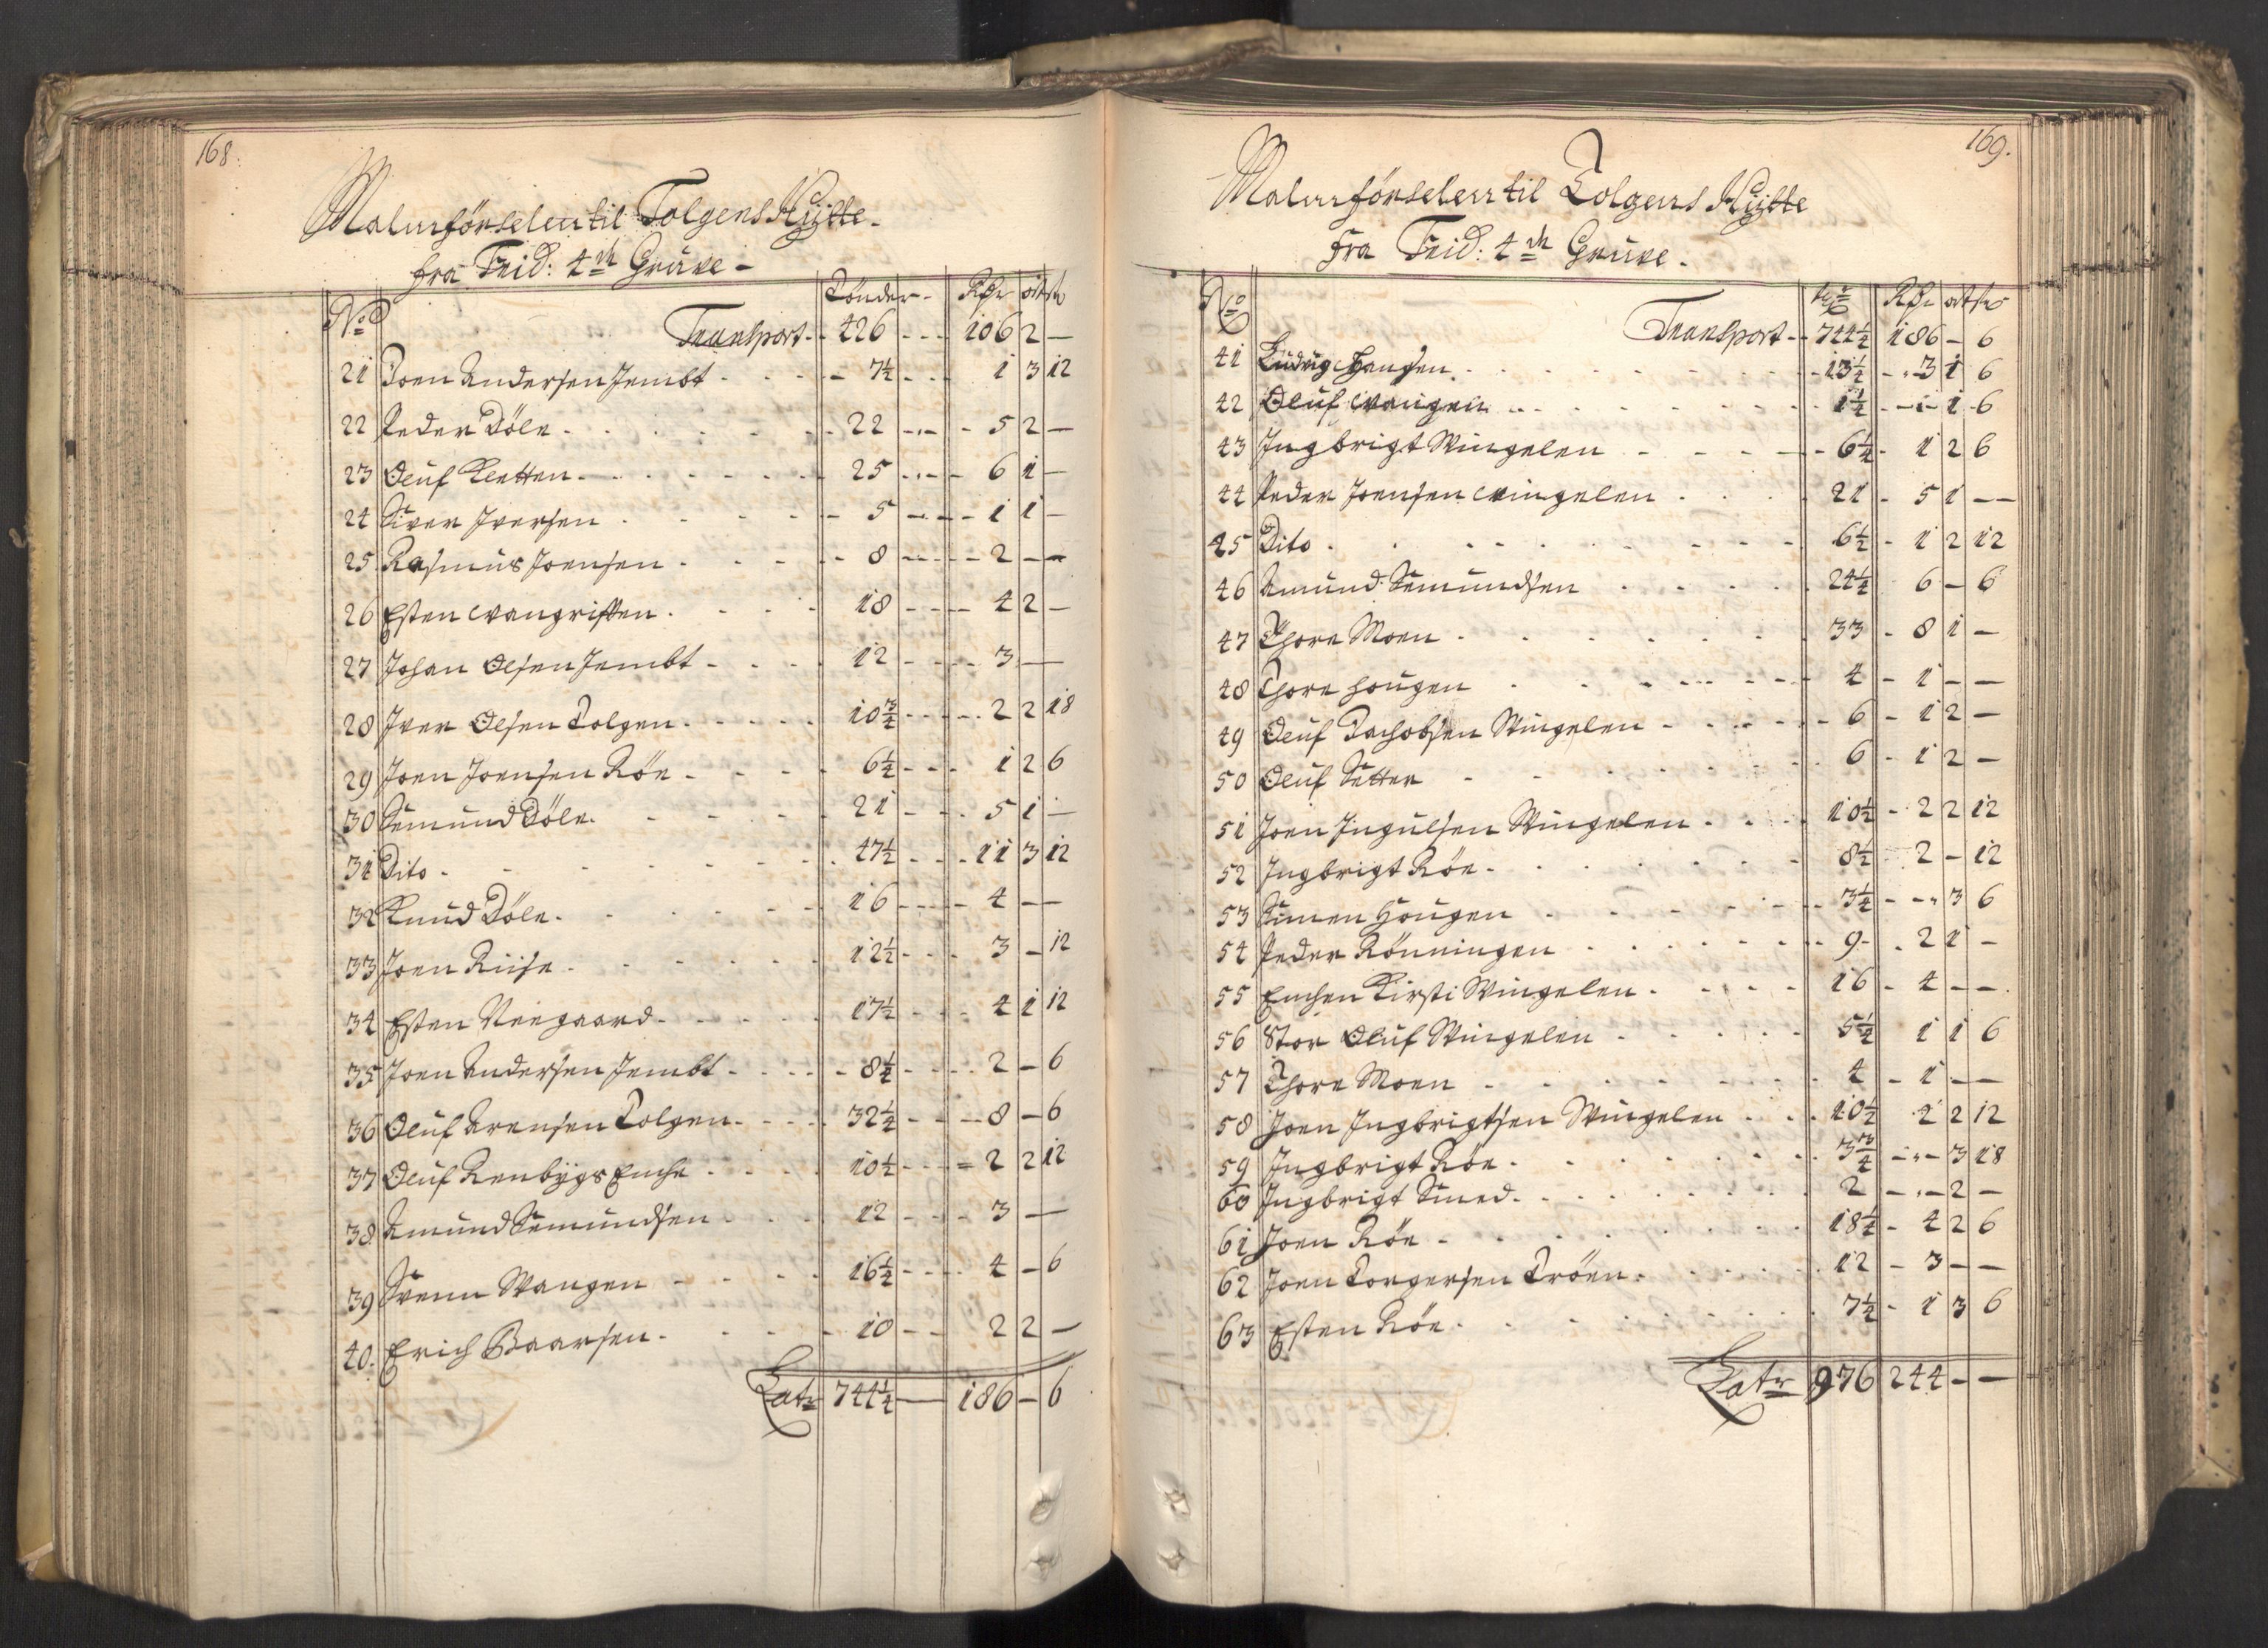 168.
Malmförselen til Tolgens Hÿtte.
fra Frid: 4de Gruve.
No Tönder Rdr ort sk
Transport 426 106 2 —
21 Joen Andersen Jembt 7½ 1 3 12
22 Peder Döle 22 5 2 —
23 Oluf Kletten 25 6 1 —
24 Siver Iversen 5 1 1 —
25 Rasmus Joensen 8 2 — —
26 Esten Wangrisken 18 4 2 —
27 Johan Olsen Jembt 12 3 —
28 Iver Olsen Tolgen 10¾ 2 2 18
29 Joen Joensen Röe 6¼ 1 2 6
30 Semund Döle 21 5 1 —
31 Dito 47½ 11 3 12
32 Knud Döle 16 4 — —
33 Joen Riise 12½ 3 — 12
34 Esten Niegaard 17½ 4 1 12
35 Joen Andersen Jembt 8¼ 2 — 6
36 Oluf Arensen Tolgen 32¼ 8 — 6
37 Oluf Renbÿgs Enche 10½ 2 2 12
38 Amund Semundsen 12 3 —
39 Svenn Wangen 16¼ 4 — 6
40. Erich Baarsen 10 2 2 —
Latr 744¼ — 186 — 6
169.
Malmförselen til Tolgens Hÿtte
fra Frid: 4de Gruve.
No tr Rdr ort sk
Transport 744¼ 186 — 6
41 Ludvig Hansen 13¼ 3 1 6
42 Oluf Wangen 1¼ — 1 6
43 Ingbrigt Wingelen 6¼ 1 2 6
44 Peder Joensen Wingelen 21 5 1 —
45 Dito 6½ 1 2 12
46 Amund Semundsen 24¼ 6 — 6
47 Thore Moen 33 8 1 —
48 Thore Hougen 4 1 — —
49 Oluf Jachobsen Wingelen 6 1 2 —
50 Oluf Setter 6 1 2 —
51 Joen Ingulsen Wingelen 10½ 2 2 12
52 Ingbrigt Röe 8½ 2 — 12
53 Simen Hougen 3¼ — 3 6
54 Peder Rönningen 9 2 1 —
55 Enchen Kirsti Wingelen 16 4 — —
56 Stor Oluf Wingelen 5¼ 1 1 6
57 Thore Moen 4 1 — —
58 Joen Ingbrigtsen Wingelen 10½ 2 2 12
59 Ingbrigt Röe 3¾ — 3 18
60 Ingbrigt Smed 2 — 2 —
61 Joen Röe 18¼ 4 2 6
62 Joen Torgersen Tröen 12 3 — —
63 Esten Röe 7¼ 1 3 6
Latr 976 244 — —